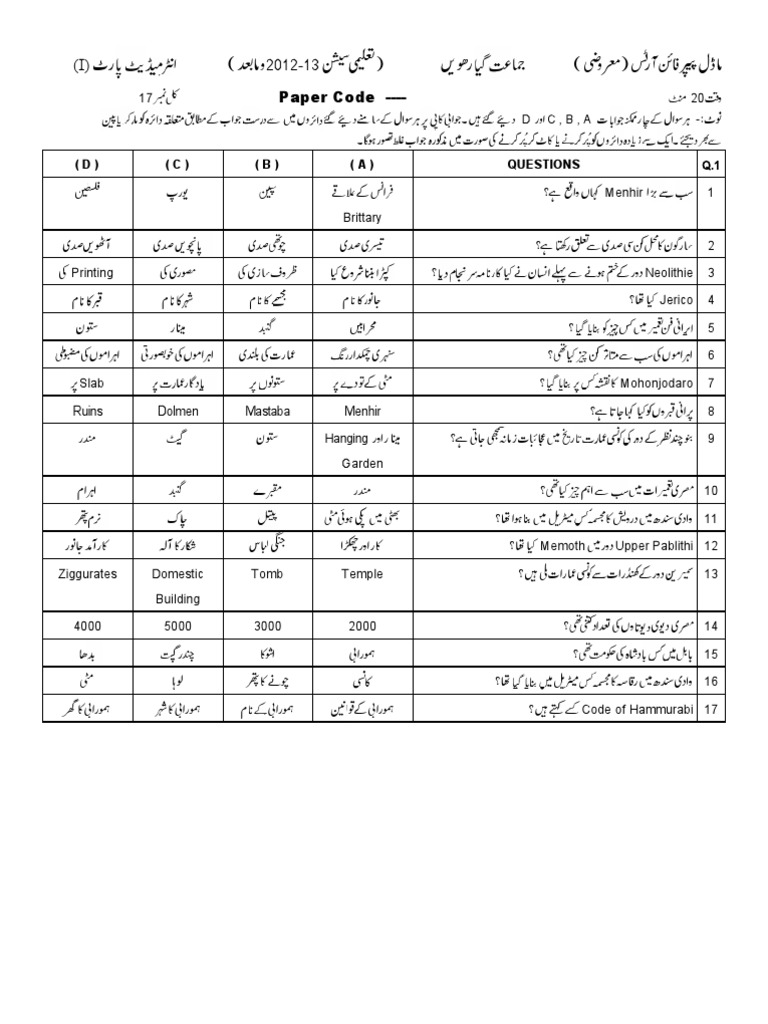 ماڈل پیپر فائن آرٹس (معروضی) جماعت گیارھویں (تعلیمی سیشن 13-2012 وما بعد) انٹرمیڈیٹ پارٹ (I)
وقت 20 منٹ Paper Code ---- کل نمبر 17
نوٹ:- ہر سوال کے چار ممکنہ جوابات C , B , A اور D دیئے گئے ہیں۔ جوابی کاپی پر ہر سوال کے سامنے دیئے گئے دائروں میں سے درست جواب کے مطابق متعلقہ دائرہ کو مارکر یا پین
سے بھر دیجئے۔ ایک سے زیادہ دائروں کو پُر کرنے یا کاٹ کر پُر کرنے کی صورت میں مذکورہ جواب غلط تصور ہوگا۔
Q.1 QUESTIONS ( A ) ( B ) ( C ) ( D )
1 سب سے بڑا Menhir کہاں واقع ہے؟ فرانس کے علاقے سپین یورپ فلسطین
Brittary
2 سارگون کا محل کن سی صدی سے تعلق رکھتا ہے؟ تیسری صدی چوتھی صدی پانچویں صدی آٹھویں صدی
3 Neolithie دور کے ختم ہونے سے پہلے انسان نے کیا کارنامہ سرانجام دیا؟ کپڑا بننا شروع کیا ظروف سازی کی مصوری کی Printing کی
4 Jerico کیا تھا؟ جانور کا نام مجسمے کا نام شہر کا نام قبر کا نام
5 ایرانی فن تعمیر میں کس چیز کو بنایا گیا؟ محرابیں گنبد مینار ستون
6 اہراموں کی سب سے متاثر کن چیز کیا تھی؟ سنہری چمکدار رنگ عمارت کی بلندی اہراموں کی خوبصورتی اہراموں کی مضبوطی
7 Mohonjodaro کا نقشہ کس پر بنایا گیا؟ مٹی کے تودے پر ستونوں پر یادگار عمارت پر Slab پر
8 پرانی قبروں کو کیا کہا جاتا ہے؟ Menhir Mastaba Dolmen Ruins
9 بنو چند نظر کے دور کی کونسی عمارت تاریخ میں عجائبات زمانہ سمجھی جاتی ہے؟ مینار اور Hanging ستون گیٹ مندر
Garden
10 مصری تعمیرات میں سب سے اہم چیز کیا تھی؟ مندر مقبرے گنبد اہرام
11 وادی سندھ میں درویش کا مجسمہ کس میٹریل میں بنا ہوا تھا؟ بھٹی میں پکی ہوئی مٹی پیتل چاک نرم پتھر
12 Upper Pablithi دور میں Memoth کیا تھا؟ کار اور چھکڑا جنگی لباس شکار کا آلہ کارآمد جانور
13 سمیرین دور کے کھنڈرات سے کونسی عمارات ملی ہیں؟ Temple Tomb Domestic Ziggurates
Building
14 مصری دیوی دیوتاوں کی تعداد کتنی تھی؟ 2000 3000 5000 4000
15 بابل میں کس بادشاہ کی حکومت تھی؟ ہمورابی اشوکا چندر گپت بدھا
16 وادی سندھ میں رقاصہ کا مجسمہ کس میٹریل میں بنایا گیا تھا؟ کانسی چونے کا پتھر لوہا مٹی
17 Code of Hammurabi کسے کہتے ہیں؟ ہمورابی کے قوانین ہمورابی کے نام ہمورابی کا شہر ہمورابی کا گھر